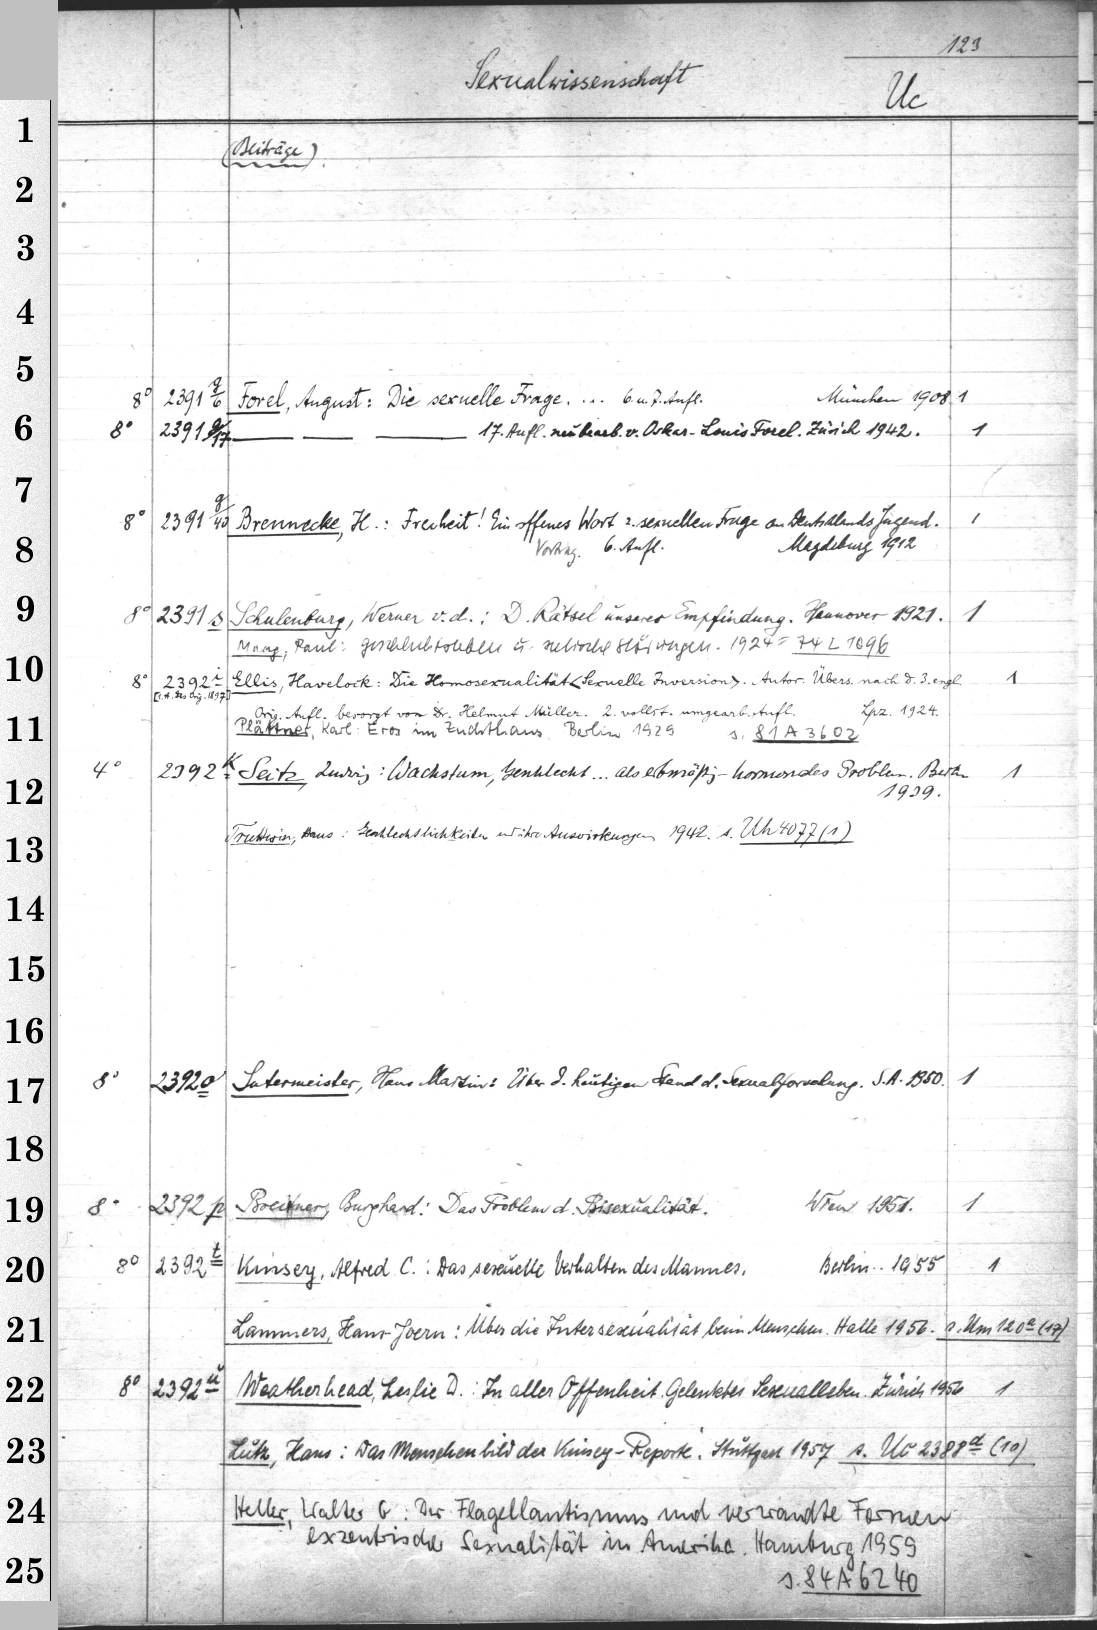 123
Sexualwissenschaft
Uc
1
(Beiträge).
2
3
4
5
8° 2391 q/6 Forel, August: Die sexuelle Frage. ... 6. u. 7. Aufl. München 1908 1
6 8° 2391 q/17 — — — 17. Aufl. neubearb. v. Oskar-Louis Forel. Zürich 1942. 1
7
8° 2391 q/40 Brennecke, H.: Freiheit! Ein offenes Wort z. sexuellen Frage an Deutschlands Jugend. 1
8 Vortrag. 6. Aufl. Magdeburg 1912
9 8° 2391 s Schulenburg, Werner v. d.: D. Rätsel unserer Empfindung. Hannover 1921. 1
Maag, Paul: Geschlechtsleben u. seelische Störungen. 1924 = 74 L 1096
10 8° 2392 i Ellis, Havelock: Die Homosexualität <Sexuelle Inversion>. Autor. Übers. nach d. 3. engl. 1
Orig. Aufl. besorgt von Dr. Helmut Müller. 2. vollst. umgearb. Aufl. Lpz. 1924.
11 Plättner, Karl: Eros im Zuchthaus Berlin 1929 s. 81 A 3602
4° 2392 k Seitz, Ludwig: Wachstum, Geschlecht ... als erbmäßig-hormonales Problem. Berlin 1
12 1939.
Hans: Geschlechtlichkeiten und ihre Auswirkungen 1942. s. Uh 4077 (1)
13
14
15
16
17 8° 2392 o Intermeister, Hans Martin: Über d. heutigen Stand d. Sexualforschung. S.A. 1950. 1
18
19 8° 2392 p Breitner, Burghard: Das Problem d. Bisexualität. Wien 1951. 1
20 8° 2392 t Kinsey, Alfred C.: Das sexuelle Verhalten des Mannes. Berlin .. 1955 1
21 Lammers, Hans-Joern: Über die Intersexualität beim Menschen. Halle 1956. s. Um 120 a (17)
22 8° 2392 u Weatherhead, Leslie D.: In aller Offenheit. Gelenktes Sexualleben. Zürich 1956 1
23 Lutz, Hans: Das Menschenbild der Kinsey-Reporte. Stuttgart 1957 s. Uc 2388 d (10)
24 Heller, Walter G: Der Flagellantismus und verwandte Formen
exzentrischer Sexualität in Amerika. Hamburg 1959
25 s. 84 A 6240